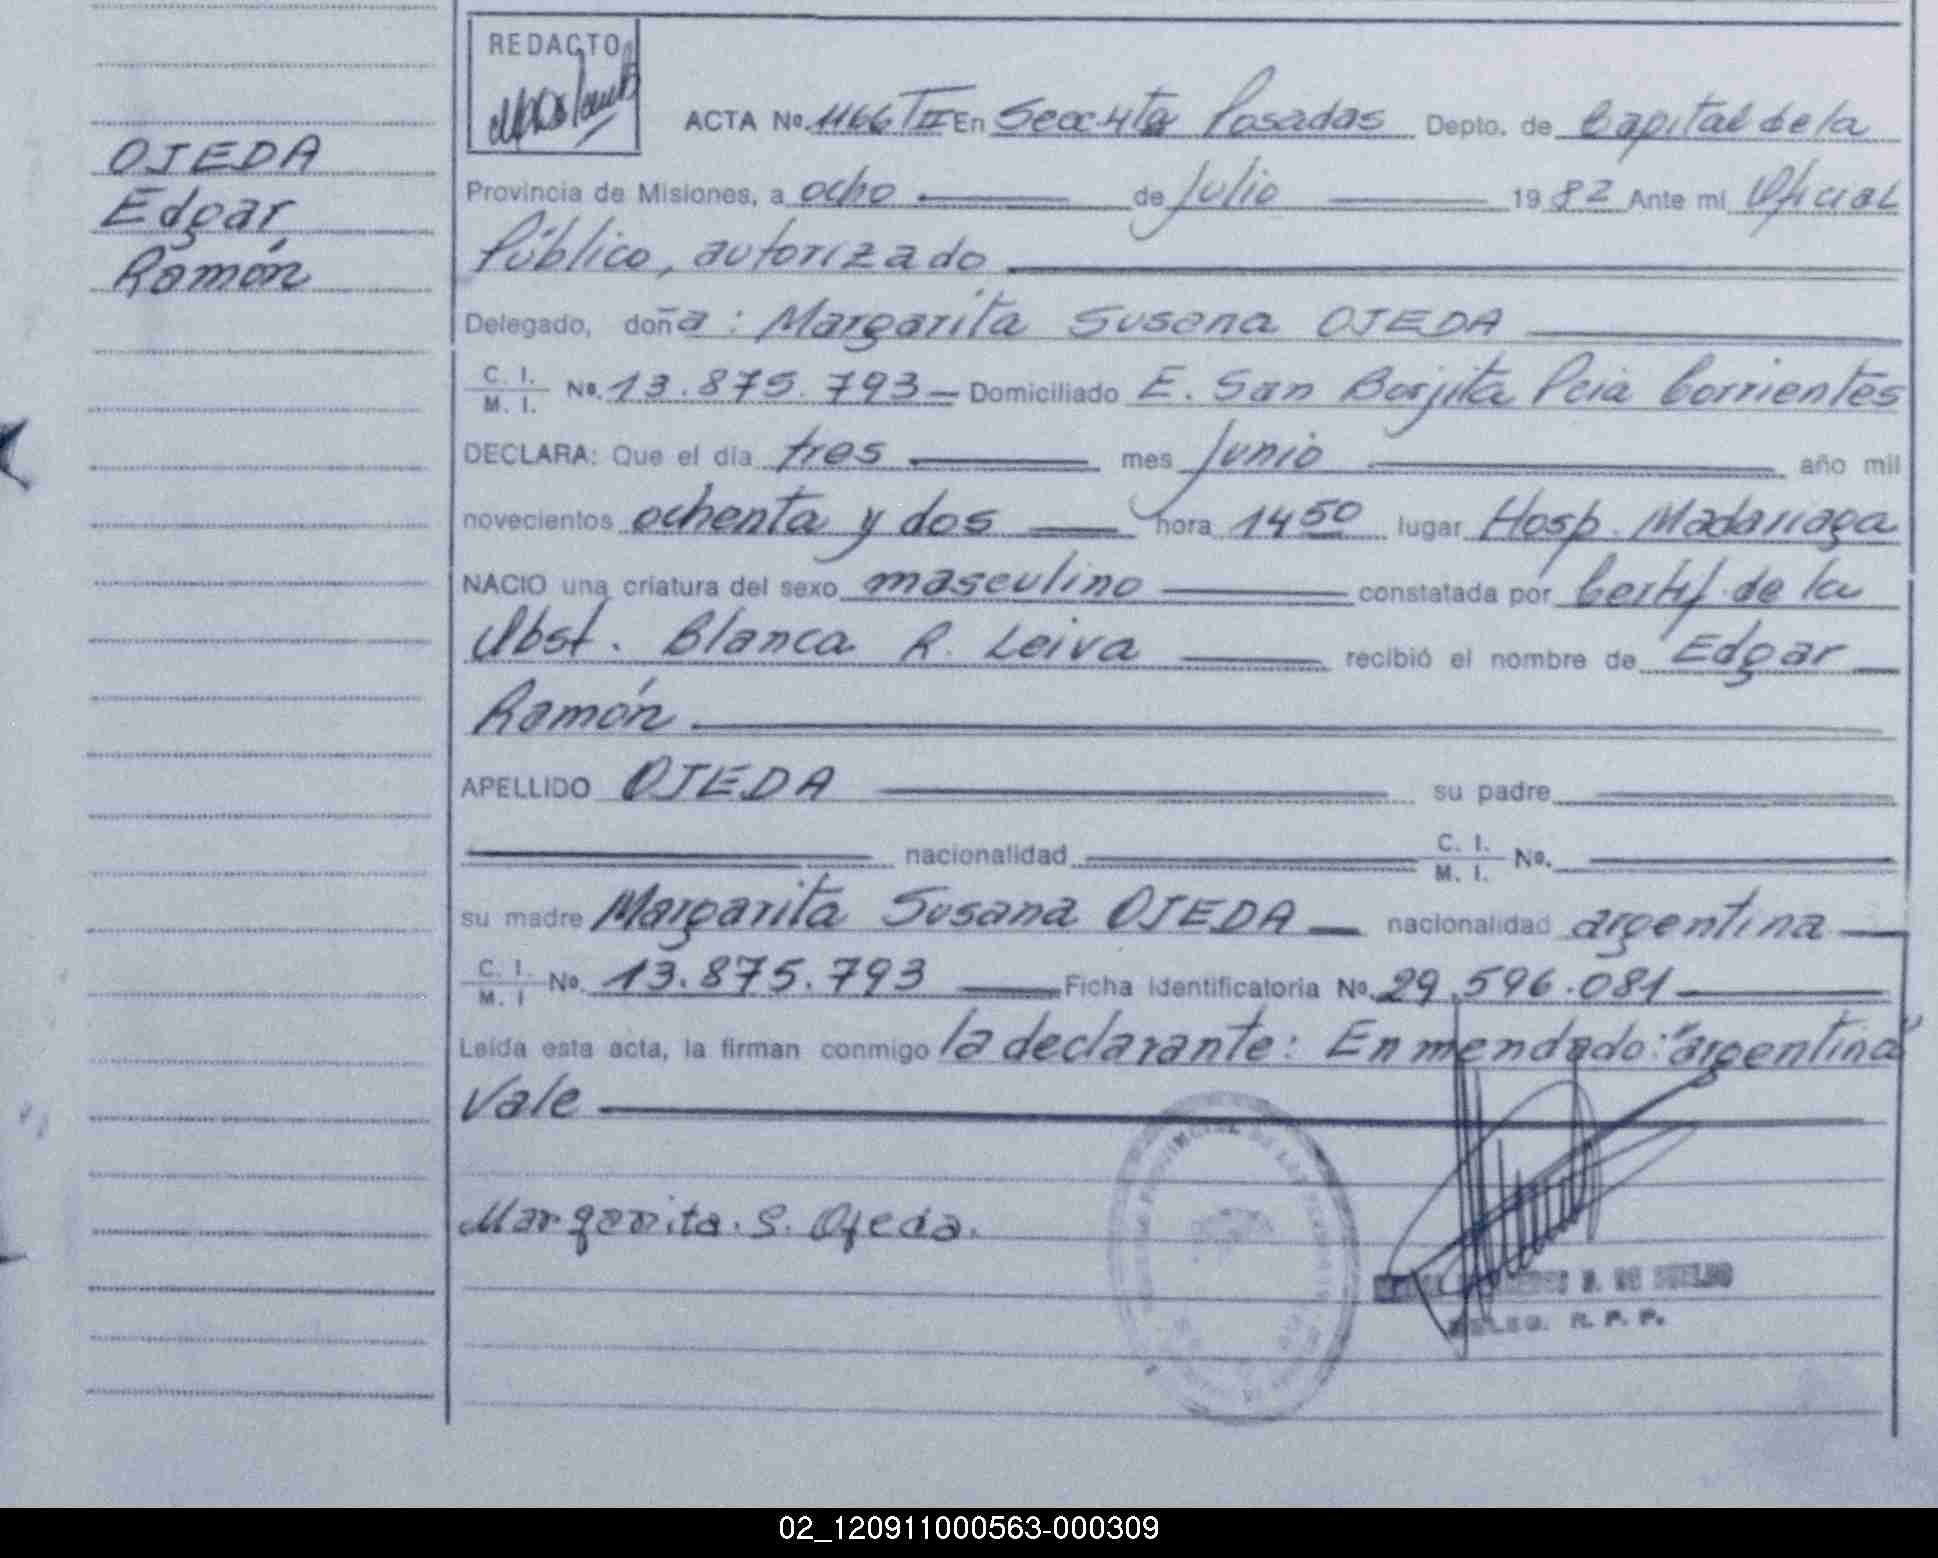 OJEDA
Edgar
Ramón
REDACTO
ACTA Nº 1166 TII En Secc 4ta Posadas Depto. de Capital de la
Provincia de Misiones, a ocho de Julio 1982 Ante mi Oficial
Público, autorizado
Delegado, doña: Margarita Susana OJEDA
C. I.
M. I. Nº. 13.875.793 Domiciliado E. San Borjita Pcia Corrientes
DECLARA: Que el día tres mes Junio año mil
novecientos ochenta y dos hora 14 50 lugar Hosp. Madariaga
NACIO una criatura del sexo masculino constatada por Certif. de la
Obst. Blanca R. Leiva recibió el nombre de Edgar
Ramón
APELLIDO OJEDA su padre
nacionalidad C. I.
M. I. Nº.
su madre Margarita Susana OJEDA nacionalidad argentina
C. I.
M. I Nº. 13.875.793 Ficha Identificatoria Nº. 29.596.081
Leída esta acta, la firman conmigo la declarante: Enmendado: "argentina"
Vale
Margarita. S. Ojeda.
DE
R. P. P.
02_120911000563-000309